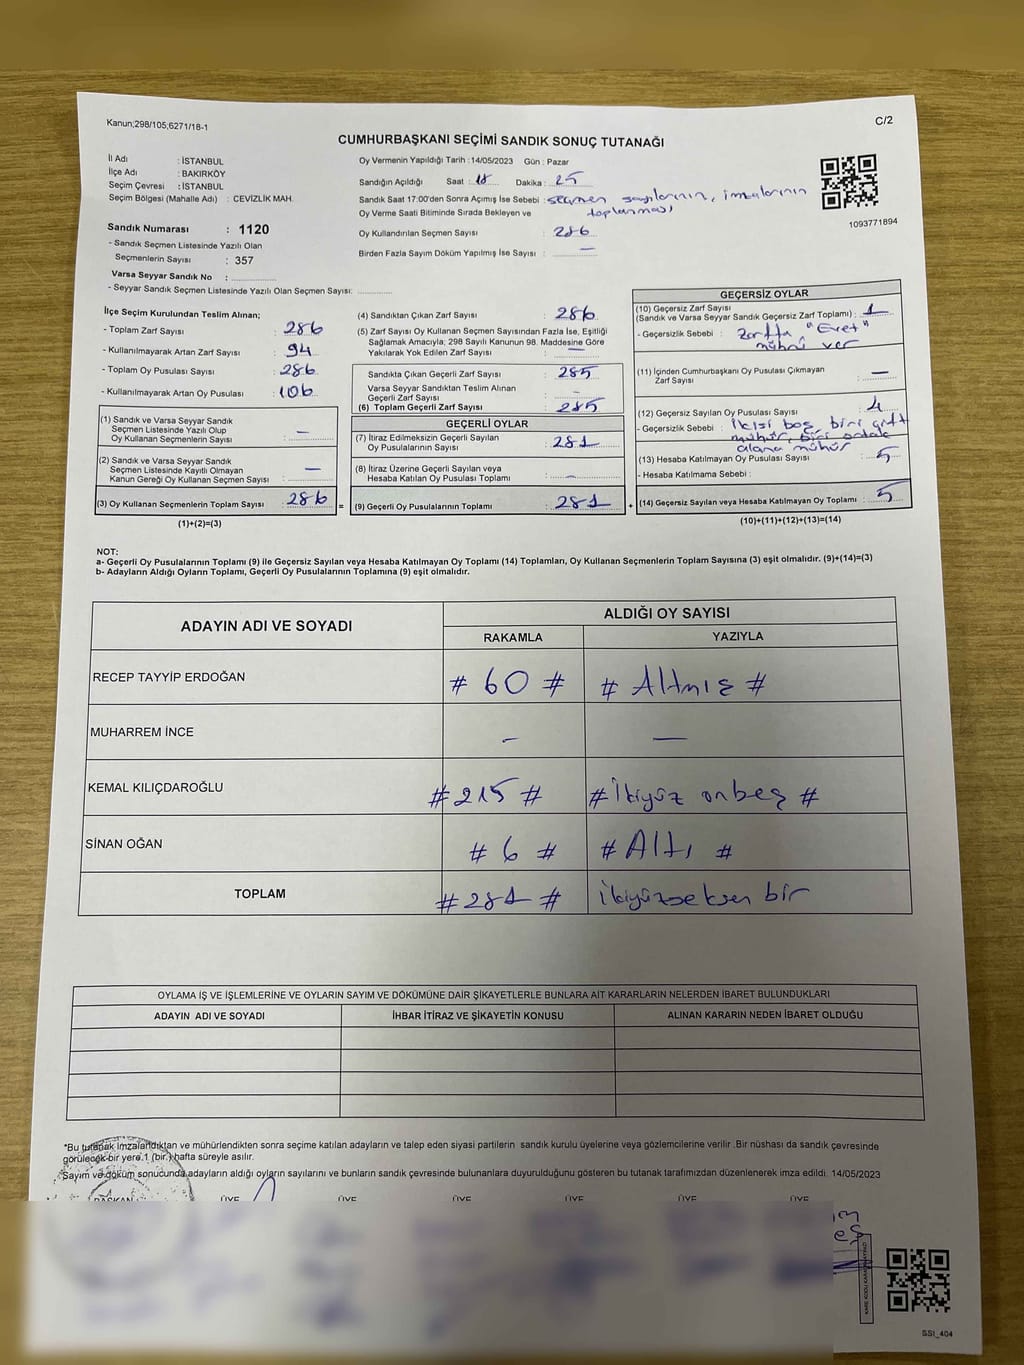 Kanun;298/105,6271/18-1
C/2
CUMHURBAŞKANI SEÇİMİ SANDIK SONUÇ TUTANAĞI
İl Adı : İSTANBUL
İlçe Adı : BAKIRKÖY
Seçim Çevresi : İSTANBUL
Seçim Bölgesi (Mahalle Adı) : CEVİZLİK MAH.
Sandık Numarası : 1120
- Sandık Seçmen Listesinde Yazılı Olan
Seçmenlerin Sayısı : 357
Varsa Seyyar Sandık No :
- Seyyar Sandık Seçmen Listesinde Yazılı Olan Seçmen Sayısı:
Oy Vermenin Yapıldığı Tarih :14/05/2023 Gün : Pazar
Sandığın Açıldığı Saat : 18 Dakika : 25
Sandık Saat 17:00'den Sonra Açımış İse Sebebi : seçmen sayılarının, imzalarının
Oy Verme Saati Bitiminde Sırada Bekleyen ve toplanması
Oy Kullandırılan Seçmen Sayısı : 286
Birden Fazla Sayım Döküm Yapılmış İse Sayısı : —
1093771894
İlçe Seçim Kurulundan Teslim Alınan;
- Toplam Zarf Sayısı : 286
- Kullanılmayarak Artan Zarf Sayısı : 94
- Toplam Oy Pusulası Sayısı : 286
- Kullanılmayarak Artan Oy Pusulası : 106
(1) Sandık ve Varsa Seyyar Sandık
Seçmen Listesinde Yazılı Olup
Oy Kullanan Seçmenlerin Sayısı : —
(2) Sandık ve Varsa Seyyar Sandık
Seçmen Listesinde Kayıtlı Olmayan
Kanun Gereği Oy Kullanan Seçmen Sayısı : —
(3) Oy Kullanan Seçmenlerin Toplam Sayısı : 286
(1)+(2)=(3)
(4) Sandıktan Çıkan Zarf Sayısı : 286
(5) Zarf Sayısı Oy Kullanan Seçmen Sayısından Fazla İse, Eşitliği
Sağlamak Amacıyla; 298 Sayılı Kanunun 98. Maddesine Göre
Yakılarak Yok Edilen Zarf Sayısı : —
Sandıkta Çıkan Geçerli Zarf Sayısı : 285
Varsa Seyyar Sandıktan Teslim Alınan
Geçerli Zarf Sayısı : -
(6) Toplam Geçerli Zarf Sayısı : 285
GEÇERLİ OYLAR
(7) İtiraz Edilmeksizin Geçerli Sayılan
Oy Pusulalarının Sayısı : 281
(8) İtiraz Üzerine Geçerli Sayılan veya
Hesaba Katılan Oy Pusulası Toplamı : -
= (9) Geçerli Oy Pusulalarının Toplamı : 281
GEÇERSİZ OYLAR
(10) Geçersiz Zarf Sayısı
(Sandık ve Varsa Seyyar Sandık Geçersiz Zarf Toplamı) : 1
- Geçersizlik Sebebi : Zarfta "Evet"
mührü var
(11) İçinden Cumhurbaşkanı Oy Pusulası Çıkmayan
Zarf Sayısı : —
(12) Geçersiz Sayılan Oy Pusulası Sayısı : 4
- Geçersizlik Sebebi : ikisi boş, biri çift
mühür, biri ortak
alana mühür
(13) Hesaba Katılmayan Oy Pusulası Sayısı : 5
- Hesaba Katılmama Sebebi :
+ (14) Geçersiz Sayılan veya Hesaba Katılmayan Oy Toplamı : 5
(10)+(11)+(12)+(13)=(14)
NOT:
a- Geçerli Oy Pusulalarının Toplamı (9) ile Geçersiz Sayılan veya Hesaba Katılmayan Oy Toplamı (14) Toplamları, Oy Kullanan Seçmenlerin Toplam Sayısına (3) eşit olmalıdır. (9)+(14)=(3)
b- Adayların Aldığı Oyların Toplamı, Geçerli Oy Pusulalarının Toplamına (9) eşit olmalıdır.
ADAYIN ADI VE SOYADI
ALDIĞI OY SAYISI
RAKAMLA YAZIYLA
RECEP TAYYİP ERDOĞAN # 60 # # Altmış #
MUHARREM İNCE - —
KEMAL KILIÇDAROĞLU # 215 # # İkiyüz onbeş #
SİNAN OĞAN # 6 # # Altı #
TOPLAM # 281 # İkiyüzseksen bir
OYLAMA İŞ VE İŞLEMLERİNE VE OYLARIN SAYIM VE DÖKÜMÜNE DAİR ŞİKAYETLERLE BUNLARA AİT KARARLARIN NELERDEN İBARET BULUNDUKLARI
ADAYIN ADI VE SOYADI İHBAR İTİRAZ VE ŞİKAYETİN KONUSU ALINAN KARARIN NEDEN İBARET OLDUĞU
*Bu tutanak imzalandıktan ve mühürlendikten sonra seçime katılan adayların ve talep eden siyasi partilerin sandık kurulu üyelerine veya gözlemcilerine verilir .Bir nüshası da sandık çevresinde
görülecek bir yere 1 (bir ) hafta süreyle asılır.
Sayım ve döküm sonucunda adayların aldığı oyların sayılarını ve bunların sandık çevresinde bulunanlara duyurulduğunu gösteren bu tutanak tarafımızdan düzenlenerek imza edildi. 14/05/2023
BAŞKAN ÜYE ÜYE ÜYE ÜYE ÜYE ÜYE
SS1_404